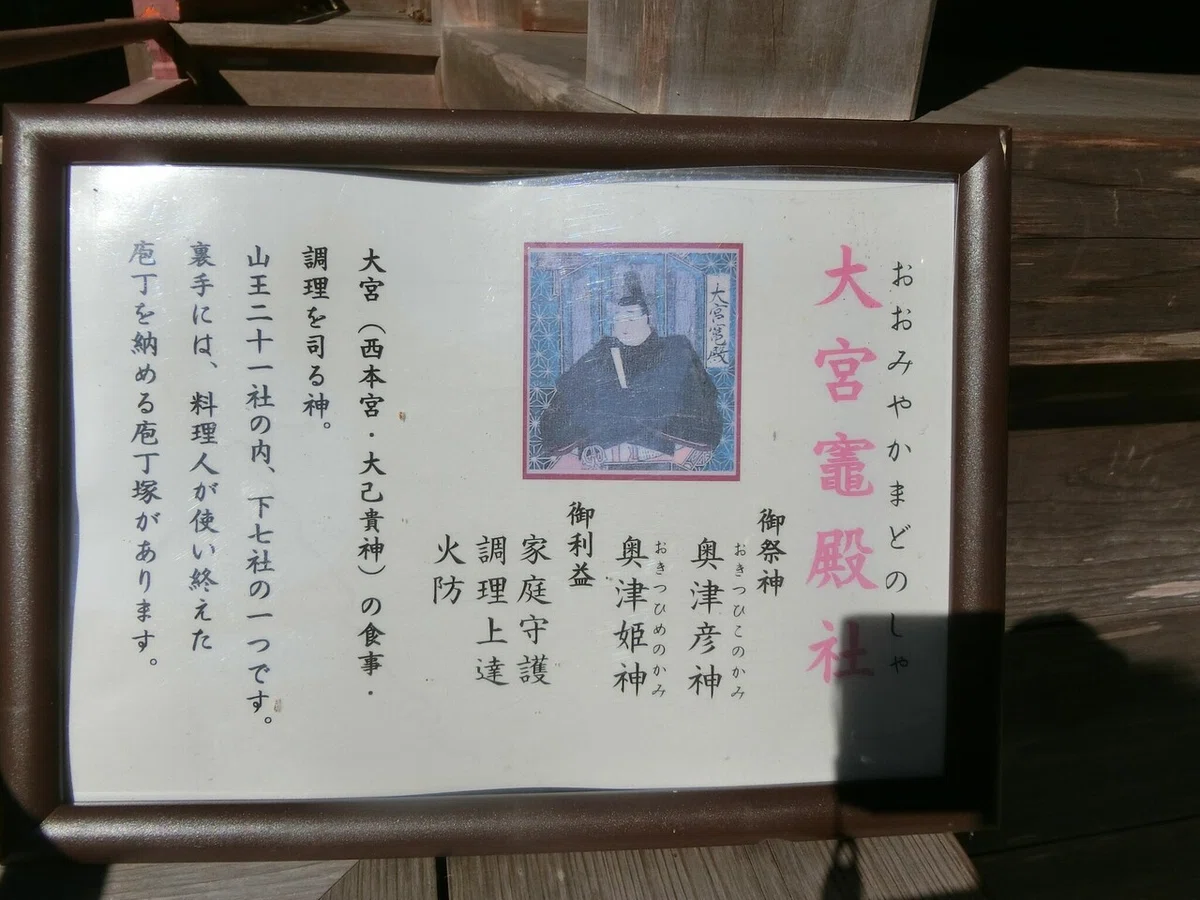 おおみやかまどのしゃ
大宮竈殿社
大宮竈殿
御祭神
おきつひこのかみ
奥津彦神
おきつひめのかみ
奥津姫神
御利益
家庭守護
調理上達
火防
大宮(西本宮・大己貴神)の食事・
調理を司る神。
山王二十一社の内、下七社の一つです。
裏手には、料理人が使い終えた
庖丁を納める庖丁塚があります。